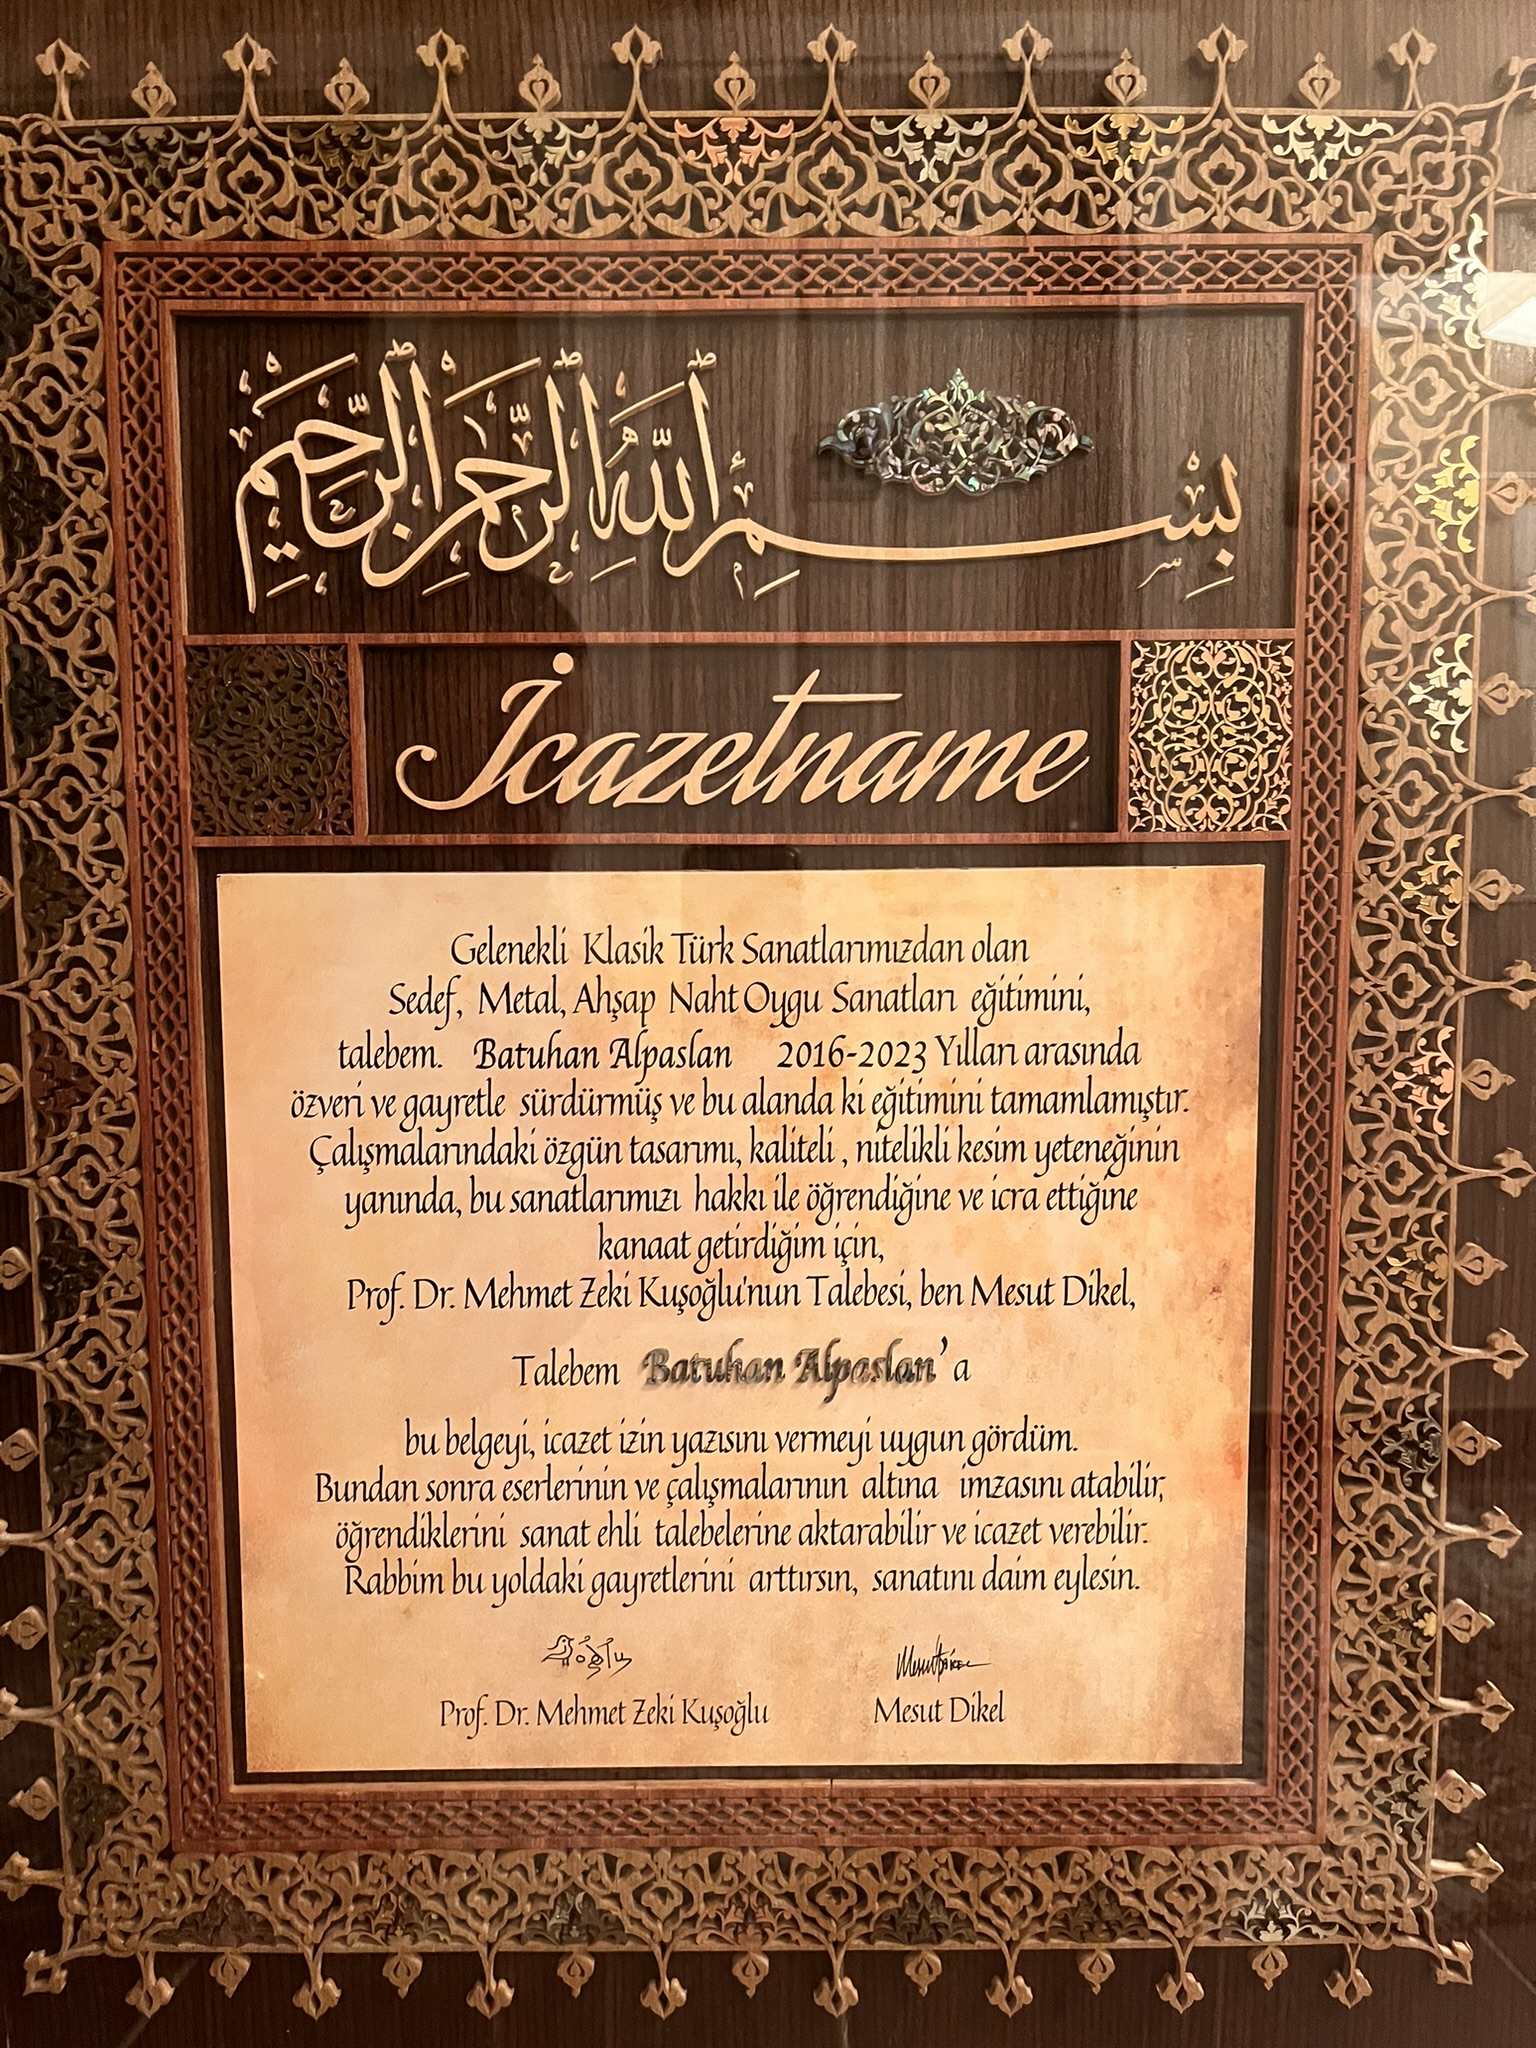 بِسْمِ اللَّهِ الرَّحْمَٰنِ الرَّحِيمِ
İcazetname
Gelenekli Klasik Türk Sanatlarımızdan olan
Sedef, Metal, Ahşap Naht Oygu Sanatları eğitimini,
talebem. Batuhan Alpaslan 2016-2023 Yılları arasında
özveri ve gayretle sürdürmüş ve bu alanda ki eğitimini tamamlamıştır.
Çalışmalarındaki özgün tasarımı, kaliteli , nitelikli kesim yeteneğinin
yanında, bu sanatlarımızı hakkı ile öğrendiğine ve icra ettiğine
kanaat getirdiğim için,
Prof. Dr. Mehmet Zeki Kuşoğlu'nun Talebesi, ben Mesut Dikel,
Talebem Batuhan Alpaslan'a
bu belgeyi, icazet izin yazısını vermeyi uygun gördüm.
Bundan sonra eserlerinin ve çalışmalarının altına imzasını atabilir,
öğrendiklerini sanat ehli talebelerine aktarabilir ve icazet verebilir.
Rabbim bu yoldaki gayretlerini arttırsın, sanatını daim eylesin.
Prof. Dr. Mehmet Zeki Kuşoğlu Mesut Dikel